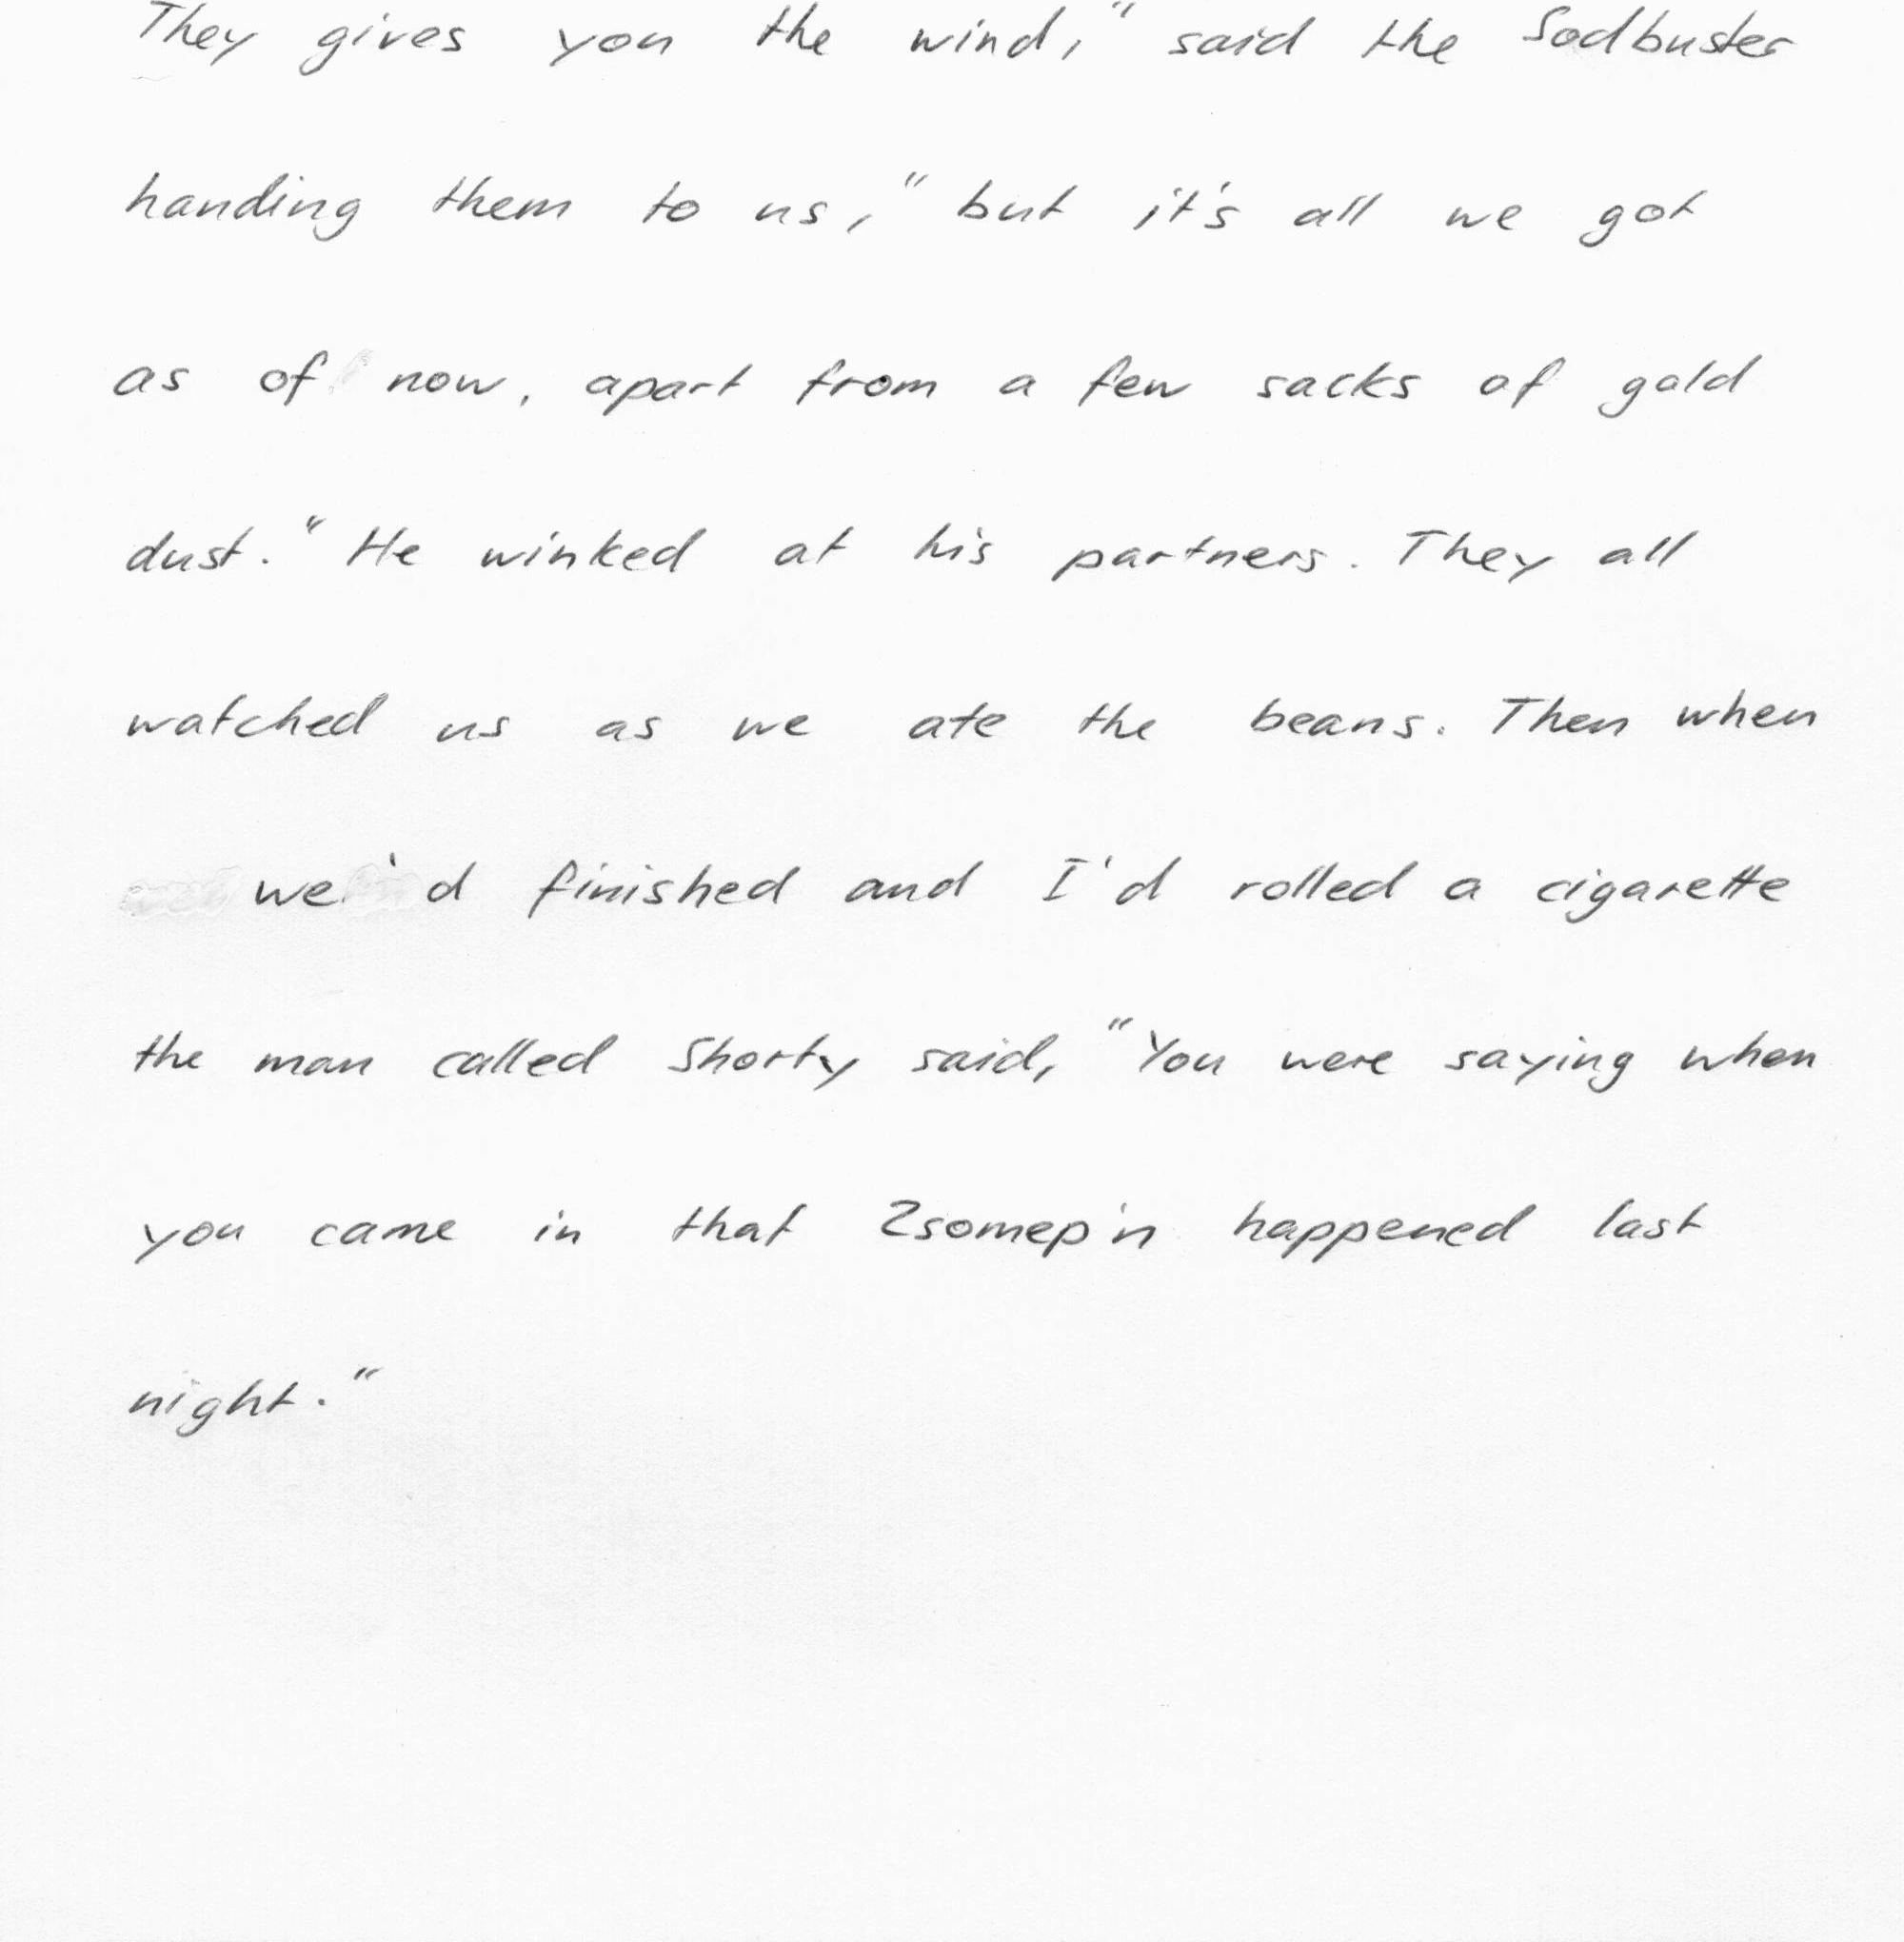 They gives you the wind," said the Sodbuster
handing them to us, "but it's all we got
as of now, apart from a few sacks of gold
dust." He winked at his partners. They all
watched us as we ate the beans. Then when
we'd finished and I'd rolled a cigarette
the man called Shorty said, "You were saying when
you came in that 2somep'n happened last
night."